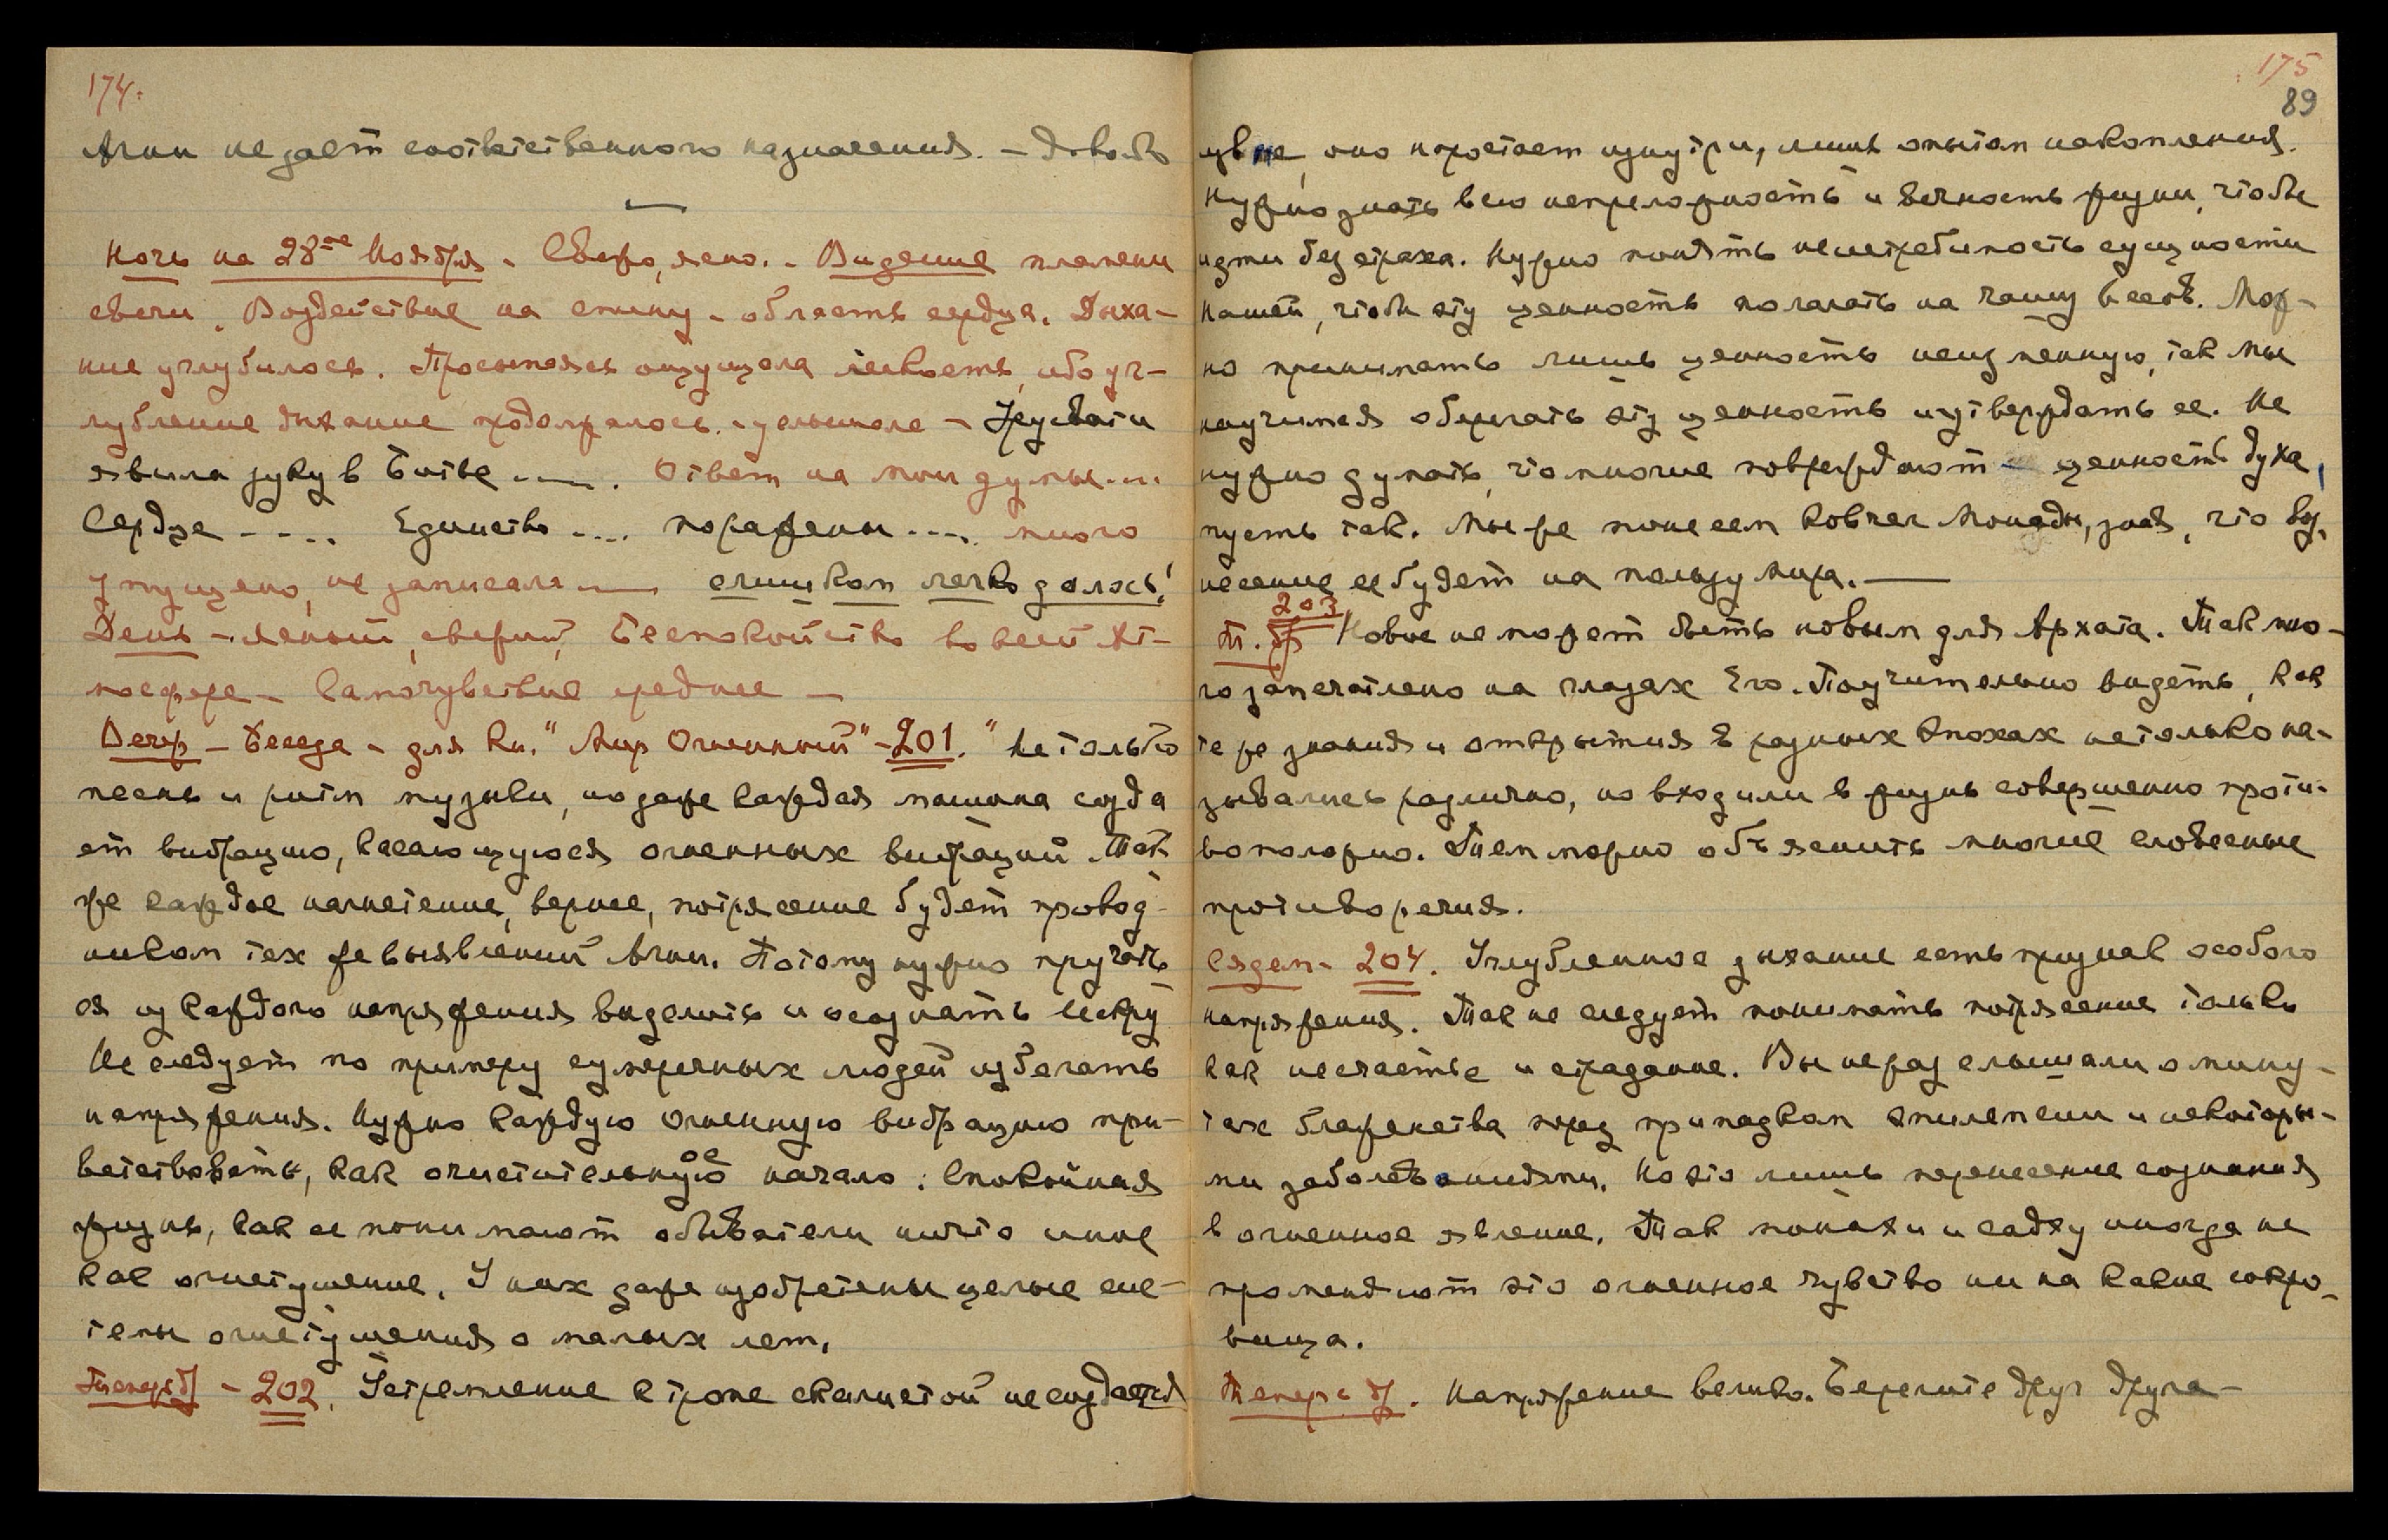 174.
Агни не дает соответственного назначения. – Довольно
Ночь на 28ое Ноября – Свежо, ясно. – Видение пламени
свечи. Воздействие на спину – область сердца. Дыха-
ние углубилось. Просыпаясь ощущала легкость, ибо уг-
лубление дыхание продолжалось. – услышала – Урусвати
явила руку в Битве ---- . Ответ на мои думы....
Сердце ---- . Единство .... поражены .... много
упущено, не записала ---- слишком легко далось!
День – ясный, свежий, Беспокойство во всей ат-
мосфере – Самочувствие среднее –
Вечер – Беседа – для Кн. "Мир Огненный" – 201. "Не только
песнь и ритм музыки, но даже каждая машина созда
ет вибрацию, касающуюся огненных вибраций. Так
же каждое нагнетение, вернее, потрясение будет провод-
ником тех же выявлений Агни. Потому нужно приучать
ся из каждого напряжения выделить и осознать искру
Не следует по примеру сумеречных людей избегать
напряжения. Нужно каждую огненную вибрацию при-
ветствовать, как очистительное начало. Спокойная
жизнь, как ее понимают обыватели ничто иное
как огнетушение. У них даже изобретены целые сис-
темы огнетушения с малых лет.
– 202. Устремление к тропе скалистой не создается
175
89
извне, оно нарастает изнутри, лишь опытам накопления.
Нужно знать всю непреложность и вечность жизни, чтобы
идти без страха. Нужно понять неистребимость сущности
нашей, чтобы эту ценность полагать на чашу весов. Мож-
но принимать лишь ценность неизменную, так мы
научимся оберегать эту ценность и утверждать ее. Не
нужно думать, что многие повреждают ценность духа,
пусть так. Мы же понесем ковчег Монады, зная, что воз-
несение ее будет на пользу Мира. ——
203
Новое не может быть новым для Архата. Так мно-
го запечатлено на глазах Его. Поучительно видеть, как
те же знания и открытия в разных эпохах не только на-
зывались различно, но входили в жизнь совершенно проти-
воположно. Тем можно объяснить многие словесные
противоречия.
Сядем – 204. Углубленное дыхание есть признак особого
напряжения. Так не следует понимать потрясение только
как несчастье и страдание. Вы не раз слышали о мину-
тах блаженства перед припадком эпилепсии и некоторы-
ми заболеваниями. Но это лишь перенесение сознания
в огненное явление. Так монахи и садху иногда не
променяют это огненное чувство ни на какие сокро-
вища.
Напряжение велико. Берегите друг друга –